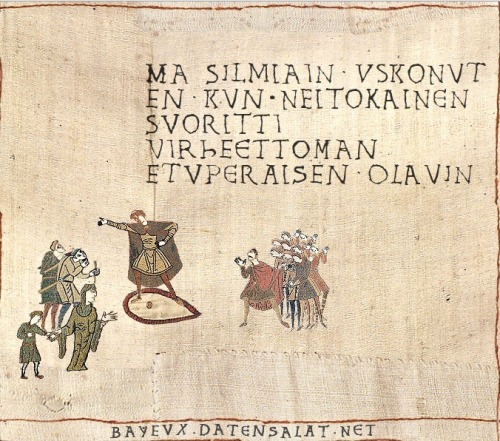 MA SILMIAIN · VSKONVT
EN · KVN · NEITOKAINEN
SVORITTI
VIRHEETTOMAN
ETVPERAISEN · OLAVIN
BAYEVX.DATENSALAT.NET